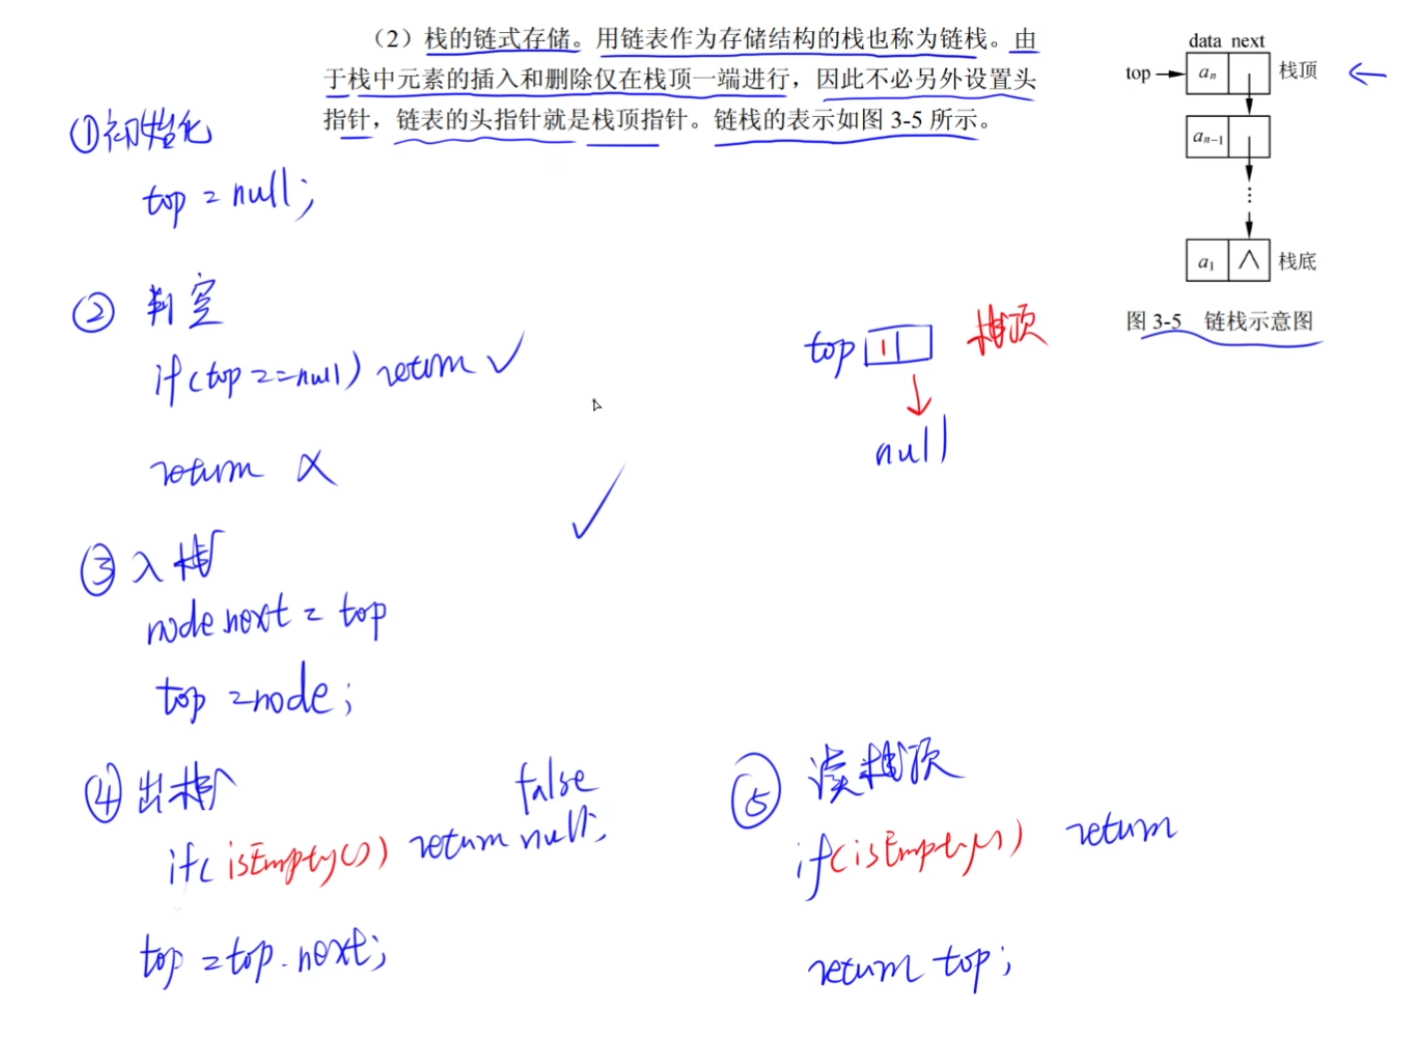 （2）栈的链式存储。用链表作为存储结构的栈也称为链栈。由
于栈中元素的插入和删除仅在栈顶一端进行，因此不必另外设置头
指针，链表的头指针就是栈顶指针。链栈的表示如图 3-5 所示。
data next
top aₙ 栈顶
aₙ₋₁
⋮
a₁ ∧ 栈底
图 3-5 链栈示意图
①初始化
top = null;
② 判空
if(top == null) return ✓
return ×
top 1 栈顶
null
✓
③ 入栈
node.next = top
top = node;
④ 出栈
false
if( isEmpty()) return null;
top = top.next;
⑤ 读栈顶
if(isEmpty()) return
return top;